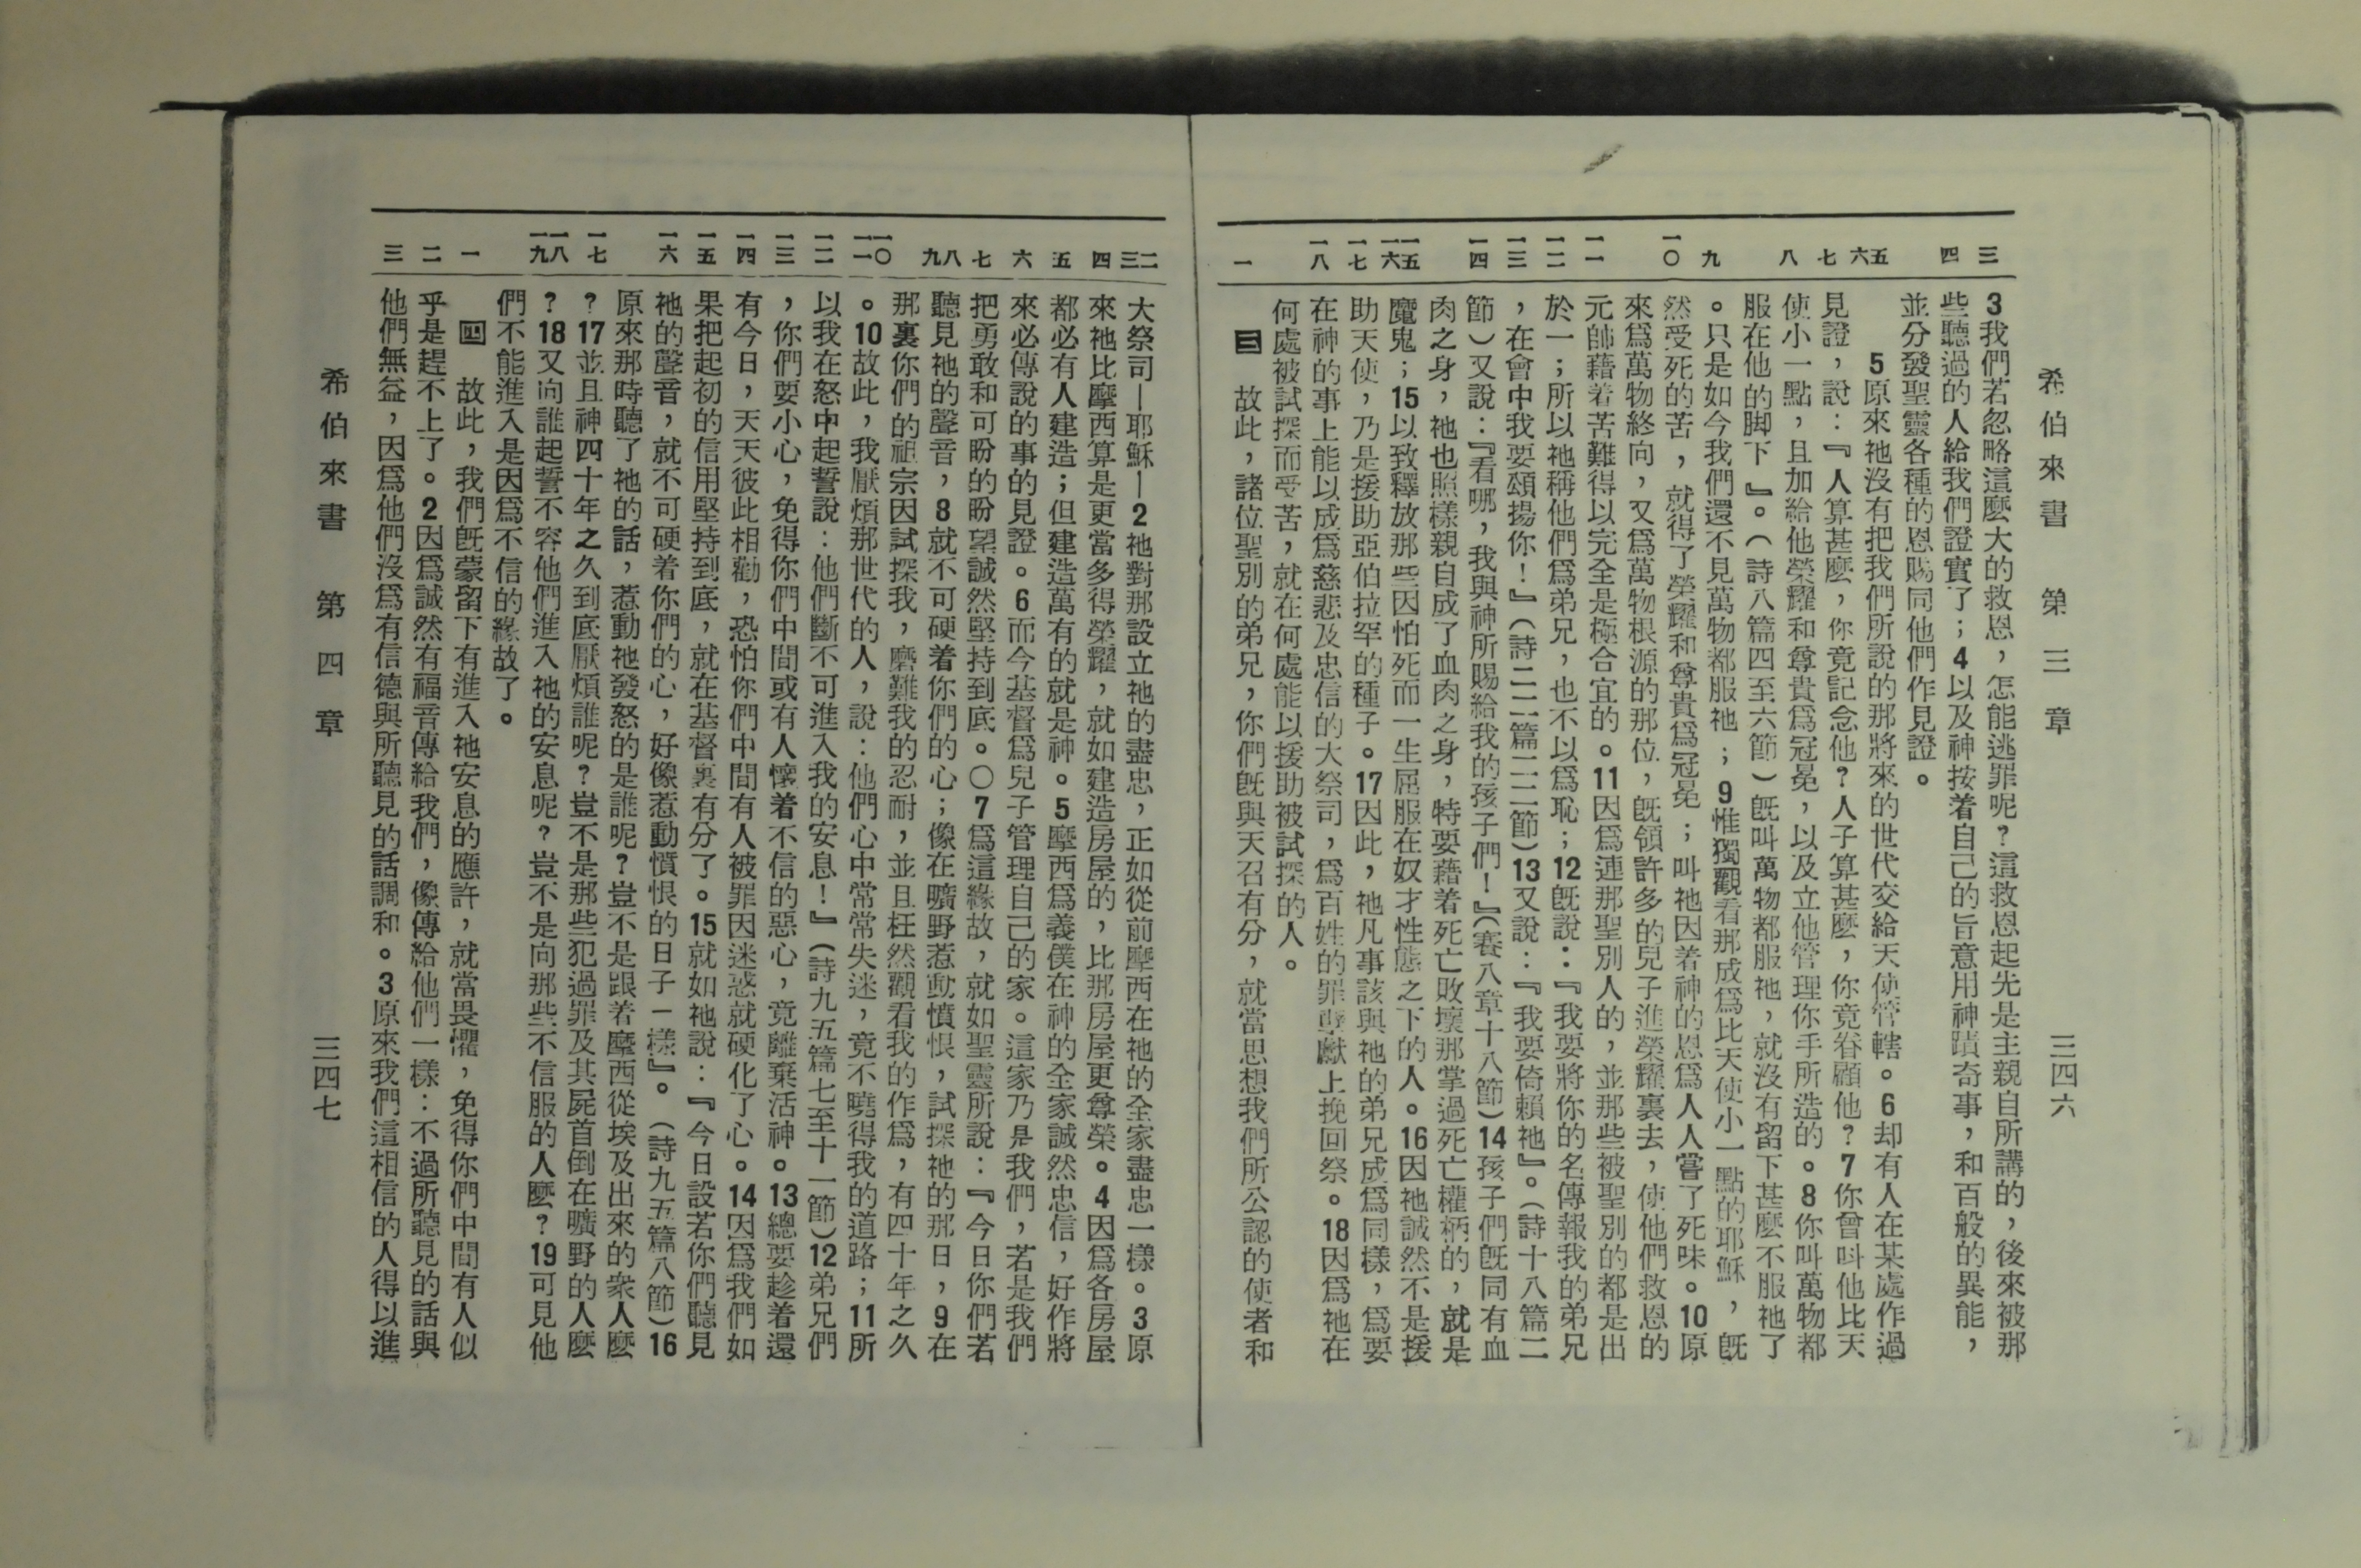 希伯來書 第三章 三四六
三 四 五 六 七 八 九 一〇 一一 一二 一三 一四 一五 一六 一七 一八 一
3我們若忽略這麼大的救恩，怎能逃罪呢？這救恩起先是主親自所講的，後來被那
些聽過的人給我們證實了；4以及神按着自己的旨意用神蹟奇事，和百般的異能，
並分發聖靈各種的恩賜同他們作見證。
5原來祂沒有把我們所說的那將來的世代交給天使管轄。6却有人在某處作過
見證，說：『人算甚麼，你竟記念他？人子算甚麼，你竟眷顧他？7你曾叫他比天
使小一點，且加給他榮耀和尊貴爲冠冕，以及立他管理你手所造的。8你叫萬物都
服在他的脚下』。（詩八篇四至六節）旣叫萬物都服祂，就沒有留下甚麼不服祂了
。只是如今我們還不見萬物都服祂；9惟獨觀看那成爲比天使小一點的耶穌，旣
然受死的苦，就得了榮耀和尊貴爲冠冕；叫祂因着神的恩爲人人嘗了死味。10原
來爲萬物終向，又爲萬物根源的那位，旣領許多的兒子進榮耀裏去，使他們救恩的
元帥藉着苦難得以完全是極合宜的。11因爲連那聖別人的，並那些被聖別的都是出
於一；所以祂稱他們爲弟兄，也不以爲恥；12旣說：『我要將你的名傳報我的弟兄
，在會中我要頌揚你！』（詩二二篇二二節）13又說：『我要倚賴祂』。（詩十八篇二
節）又說：『看哪，我與神所賜給我的孩子們！』（賽八章十八節）14孩子們旣同有血
肉之身，祂也照樣親自成了血肉之身，特要藉着死亡敗壞那掌過死亡權柄的，就是
魔鬼；15以致釋放那些因怕死而一生屈服在奴才性態之下的人。16因祂誠然不是援
助天使，乃是援助亞伯拉罕的種子。17因此，祂凡事該與祂的弟兄成爲同樣，爲要
在神的事上能以成爲慈悲及忠信的大祭司，爲百姓的罪孽獻上挽回祭。18因爲祂在
何處被試探而受苦，就在何處能以援助被試探的人。
三 故此，諸位聖別的弟兄，你們旣與天召有分，就當思想我們所公認的使者和
二 三 四 五 六 七 八 九 一〇 一一 一二 一三 一四 一五 一六 一七 一八 一九 一 二 三
大祭司—耶穌—2祂對那設立祂的盡忠，正如從前摩西在祂的全家盡忠一樣。3原
來祂比摩西算是更當多得榮耀，就如建造房屋的，比那房屋更尊榮。4因爲各房屋
都必有人建造；但建造萬有的就是神。5摩西爲義僕在神的全家誠然忠信，好作將
來必傳說的事的見證。6而今基督爲兒子管理自己的家。這家乃是我們，若是我們
把勇敢和可盼的盼望誠然堅持到底。〇7爲這緣故，就如聖靈所說：『今日你們若
聽見祂的聲音，8就不可硬着你們的心；像在曠野惹動憤恨，試探祂的那日，9在
那裏你們的祖宗因試探我，磨難我的忍耐，並且枉然觀看我的作爲，有四十年之久
。10故此，我厭煩那世代的人，說：他們心中常常失迷，竟不曉得我的道路；11所
以我在怒中起誓說：他們斷不可進入我的安息！』（詩九五篇七至十一節）12弟兄們
，你們要小心，免得你們中間或有人懷着不信的惡心，竟離棄活神。13總要趁着還
有今日，天天彼此相勸，恐怕你們中間有人被罪因迷惑就硬化了心。14因爲我們如
果把起初的信用堅持到底，就在基督裏有分了。15就如祂說：『今日設若你們聽見
祂的聲音，就不可硬着你們的心，好像惹動憤恨的日子一樣』。（詩九五篇八節）16
原來那時聽了祂的話，惹動祂發怒的是誰呢？豈不是跟着摩西從埃及出來的衆人麼
？17並且神四十年之久到底厭煩誰呢？豈不是那些犯過罪及其屍首倒在曠野的人麼
？18又向誰起誓不容他們進入祂的安息呢？豈不是向那些不信服的人麼？19可見他
們不能進入是因爲不信的緣故了。
四 故此，我們旣蒙留下有進入祂安息的應許，就當畏懼，免得你們中間有人似
乎是趕不上了。2因爲誠然有福音傳給我們，像傳給他們一樣：不過所聽見的話與
他們無益，因爲他們沒爲有信德與所聽見的話調和。3原來我們這相信的人得以進
希伯來書 第四章 三四七